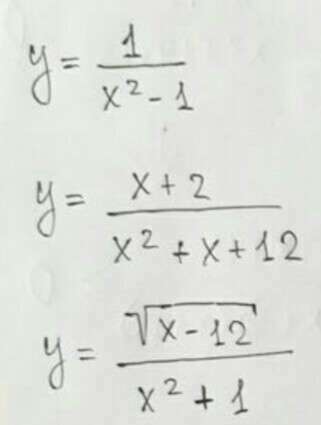 y = 1 / (x² - 1)
y = (x + 2) / (x² + x + 12)
y = √(x - 12) / (x² + 1)